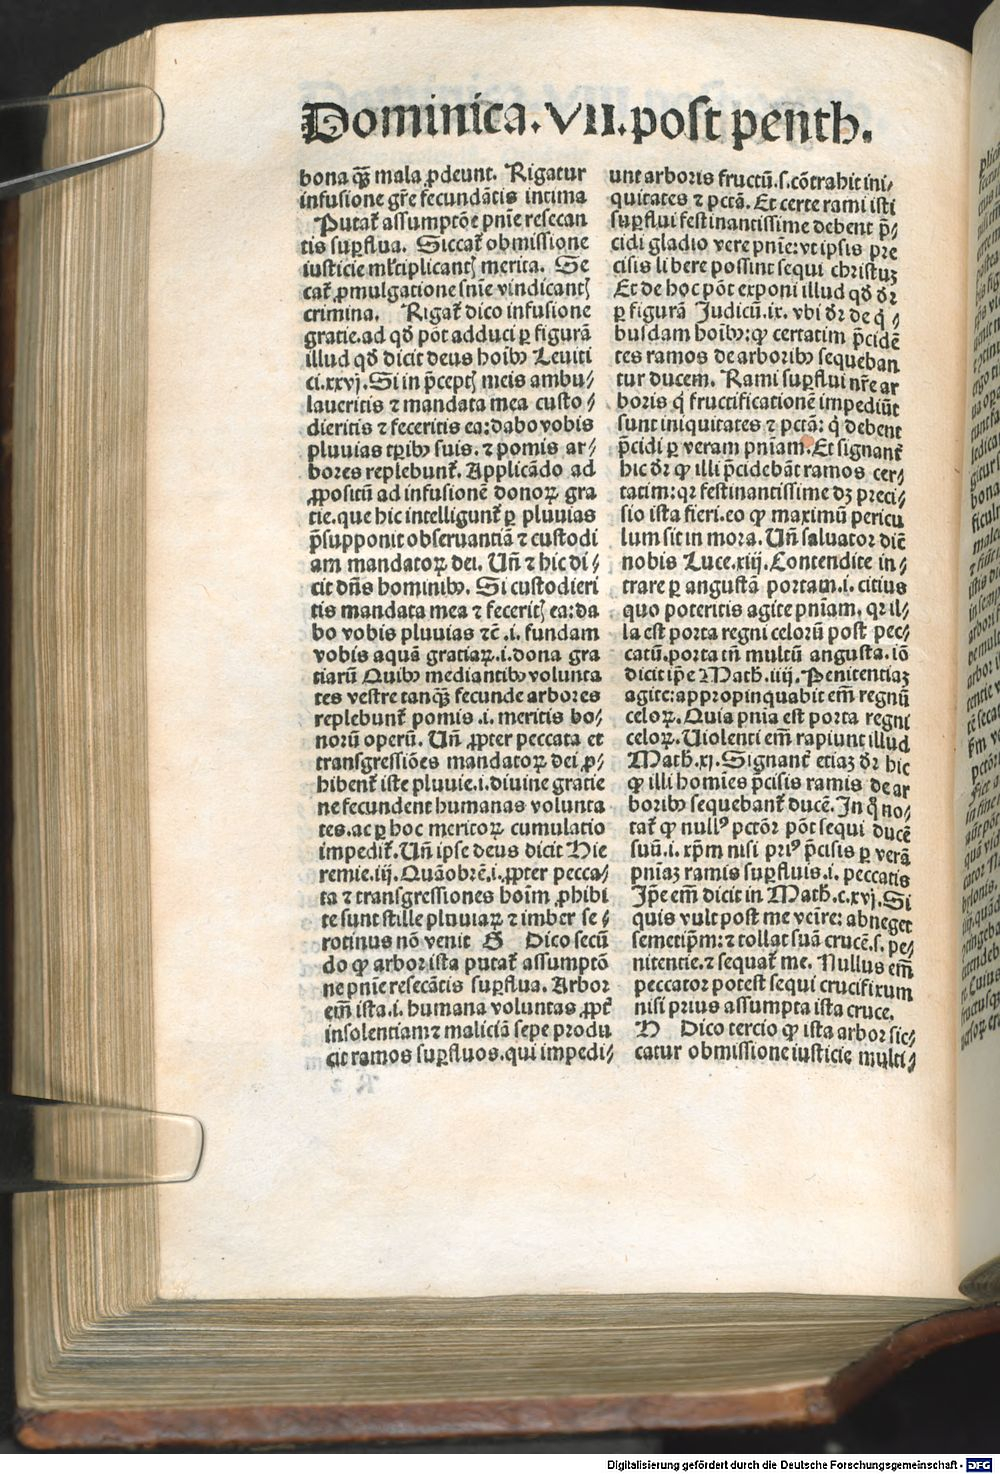 Dominica.VII.post penth.
bona qꝫ mala ꝓdeunt. Rigatur
infusione gr̄e fecundātis intima
Putat᷑ assumptōe pnīe resecan
tis suꝑflua. Siccat᷑ obmissione
iusticie ml̓tiplicantꝭ merita. Se
cat᷑ ꝓmulgatione snīe vindicantꝭ
crimina. Rigat᷑ dico infusione
gratie.ad qd̓ pōt adduci ꝑ figurā
illud qd̓ dicit deus hoībꝰ Leuiti
ci.xxvj.Si in p̄ceptꝭ meis ambu⸗
laueritis ⁊ mandata mea custo⸗
dieritis ⁊ feceritis ea:dabo vobis
pluuias tꝑibꝰ suis. ⁊ pomis ar⸗
bores replebunt᷑. Applicādo ad
ꝓpositū ad infusionē donoꝝ gra
tie.que hic intelligunt᷑ ꝑ pluuias
p̄supponit obseruantiā ⁊ custodi
am mandatoꝝ dei. Un̄ ⁊ hic di⸗
cit dn̄s hominibꝰ. Si custodieri
tis mandata mea ⁊ feceritꝭ ea:da
bo vobis pluuias ⁊c̄ .i. fundam
vobis aquā gratiaꝝ.i.dona gra
tiarū Quibꝰ mediantibꝰ volunta
tes vestre tanqꝫ fecunde arbores
replebunt᷑ pomis .i. meritis bo⸗
norū operū. Un̄ ꝓpter peccata et
transgressiōes mandatoꝝ dei ꝓ⸗
hibent᷑ iste pluuie.i.diuine gratie
ne fecundent humanas volunta
tes.ac ꝑ hoc meritoꝝ cumulatio
impedit᷑.Un̄ ipse deus dicit Hie
remie.iij.Quāobrē.i.ꝓpter pecca⸗
ta ⁊ transgressiones hoīm ꝓhibi
te sunt stille pluuiaꝝ ⁊ imber se⸗
rotinus nō venit G Dico secū
do ꝙ arbor ista putat᷑ assumptō
ne pnīe resecātis suꝑflua. Arbor
em̄ ista.i. humana voluntas ꝓpt᷑
insolentiam ⁊ maliciā sepe produ
cit ramos suꝑfluos.qui impedi⸗
unt arboris fructū.s.cōtrahit ini⸗
quitates ⁊ pctā. Et certe rami isti
suꝑflui festinantissime debent p̄⸗
cidi gladio vere pnīe:vt ipsis pre
cisis libere possint sequi christuꝫ
Et de hoc pōt exponi illud qd̓ dr̄
ꝑ figurā Judicū.ix. vbi dr̄ de q̓⸗
busdam hoībꝰ:ꝙ certatim p̄cidē
tes ramos de arboribꝰ sequeban
tur ducem. Rami suꝑflui nr̄e ar
boris q̓ fructificationē impediūt
sunt iniquitates ⁊ pctā: q̓ debent
p̄cidi ꝑ veram pniam.Et signant᷑
hic dr̄ ꝙ illi p̄cidebāt ramos cer⸗
tatim:qꝛ festinantissime dꝫ preci⸗
sio ista fieri.eo ꝙ maximū pericu
lum sit in mora. Un̄ saluator dic̄
nobis Luce.xiij.Contendite in⸗
trare ꝑ angustā portam.i. citius
quo poteritis agite pniam. qꝛ il⸗
la est porta regni celorū post pec⸗
catū.porta tn̄ multū angusta.iō
dicit ip̄e Math.iiij.Penitentiaꝫ
agite:appropinquabit em̄ regnū
celoꝝ.Quia pnīa est porta regni
celoꝝ.Uiolenti em̄ rapiunt illud
Math.xj.Signant᷑ etiaꝫ dr̄ hic
ꝙ illi homīes p̄cisis ramis de ar
boribꝰ sequebant᷑ ducē. In q̓ no⸗
tat᷑ ꝙ nullꝰ pctōr pōt sequi ducē
suū.i. xp̄m nisi priꝰ p̄cisis ꝑ verā
pnīaꝫ ramis suꝑfluis.i. peccatis
Jp̄e em̄ dicit in Math.c.xvj.Si
quis vult post me veīre: abneget
semetip̄m:⁊ tollat suā crucē.s. pe⸗
nitentie.⁊ sequat᷑ me. Nullus em̄
peccator potest sequi crucifixum
nisi prius assumpta ista cruce.
H Dico tercio ꝙ ista arbor sic⸗
catur obmissione iusticie multi⸗
Digitalisierung gefördert durch die Deutsche Forschungsgemeinschaft - DFG